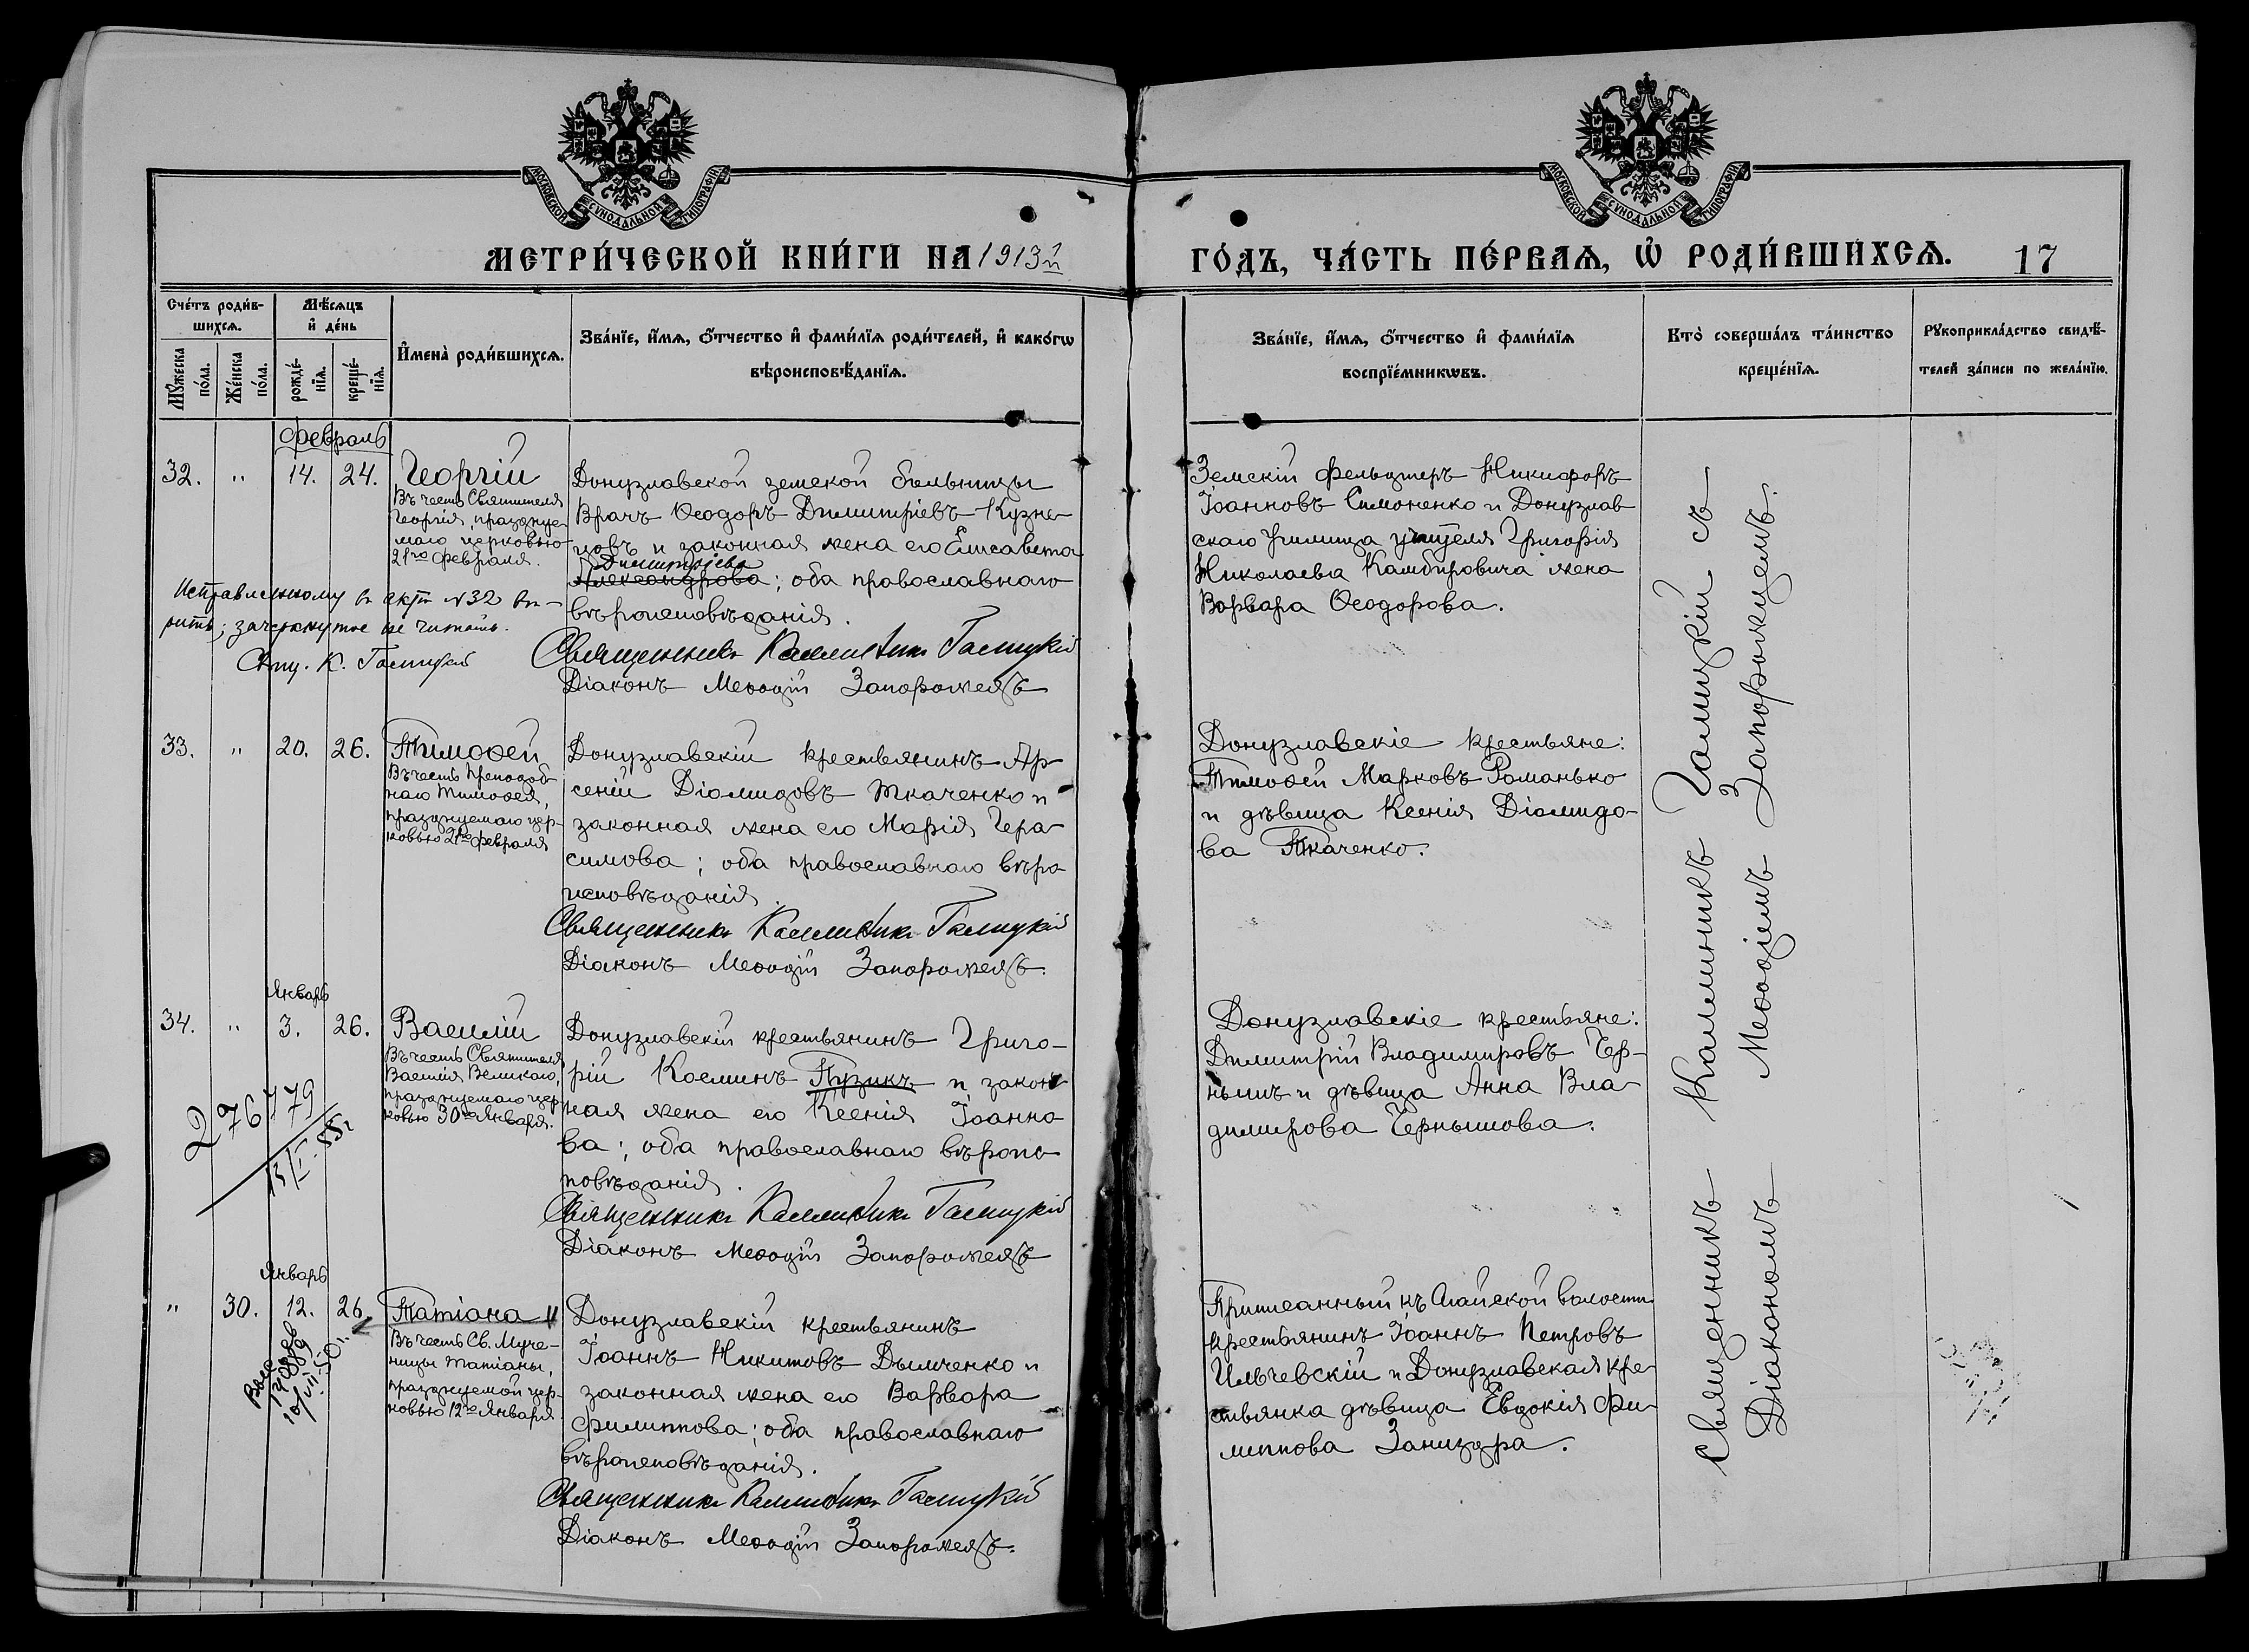 МОСКОВСКОЙ СѴНОДАЛЬНОЙ ТИПОГРАФІИ
МОСКОВСКОЙ СѴНОДАЛЬНОЙ ТИПОГРАФІИ
МЕТРИ́ЧЕСКОЙ КНИ́ГИ НА 1913й
ГО́ДЪ, ЧА́СТЬ ПЕ́РВАѦ, Ѡ РОДИ́ВШИХСѦ. 17
Сче́тъ роди́в-
шихсѧ.
Мꙋ́жеска по́ла.
Же́нска по́ла.
Мѣ́сѧцъ
и҆ де́нь
рожде́-
нїѧ.
креще́-
нїѧ.
И҆мена̀ роди́вшихсѧ.
Зва́нїе, и҆́мѧ, ѻ҆́тчество и҆ фами́лїѧ роди́телей, и҆ како́гѡ
вѣроисповѣ́данїѧ.
Зва́нїе, и҆́мѧ, ѻ҆́тчество и҆ фами́лїѧ
воспрїе́мникѡвъ.
Кто̀ соверша́лъ та́инство
креще́нїѧ.
Рꙋкоприкла́дство свидѣ́-
телей за́писи по жела́нїю.
Февраль
32. " 14. 24. Георгій
Въ честь Святителя
Георгія, празднуе-
маго церковью
21го февраля.
Донузлавской земской больницы
Врачъ Ѳеодоръ Димитріевъ Кузне-
цовъ и законная жена его Елисавета
Димитріева
Александрова; оба православнаго
вѣроисповѣданія.
Исправленному в акте №32 ве-
рить; зачеркнутое не читать.
Свящ. К. Галицкій
Священникъ Каллиникъ Галицкій
Діаконъ Меѳодій Запорожецъ
Земскій фельдшеръ Никифоръ
Іоанновъ Симоненко и Донузлав
скаго училища учителя Григорія
Николаева Камбировича жена
Варвара Ѳеодорова.
33. " 20. 26. Тимоѳей
Въ честь Преподоб-
наго Тимоѳея,
празднуемаго цер-
ковью 21го февраля
Донузлавскій крестьянинъ Ар-
сеній Діомидовъ Ткаченко и
законная жена его Марія Гера-
симова; оба православнаго вѣро
исповѣданія.
Священникъ Каллиникъ Галицкій
Діаконъ Меѳодій Запорожецъ.
Донузлавскіе крестьяне:
Тимоѳей Марковъ Романько
и дѣвица Ксенія Діомидо-
ва Ткаченко.
Январь
34. " 3. 26. Василій
Въ честь Святителя
Василія Великаго,
празднуемаго цер-
ковью 30го Января.
276779
13/I-55г
Донузлавскій крестьянинъ Григо-
рій Косминъ Пузикъ и закон-
ная жена его Ксенія Іоанно
ва; оба православнаго вѣроис-
повѣданія.
Священникъ Каллиникъ Галицкій
Діаконъ Меѳодій Запорожецъ
Донузлавскіе крестьяне:
Димитрій Владимировъ Чер-
нышъ и дѣвица Анна Вла-
димирова Чернышова.
Январь
" 30. 12. 26. Татіана
Въ честь Св. Муче-
ницы Татіаны,
празднуемой цер-
ковью 12го Января
10/VII-50г.
Донузлавскій крестьянинъ
Іоаннъ Никитовъ Дымченко и
законная жена его Варвара
Филиппова; оба православнаго
вѣроисповѣданія.
Священникъ Каллиникъ Галицкій
Діаконъ Меѳодій Запорожецъ.
Приписанный къ Агайской волости
крестьянинъ Іоаннъ Петровъ
Ильчевскій и Донузлавская кре-
стьянка дѣвица Евдокія Фи-
липпова Заниздра.
Священникъ Каллиникъ Галицкій съ
Діакономъ Меѳодіемъ Запорожцемъ.